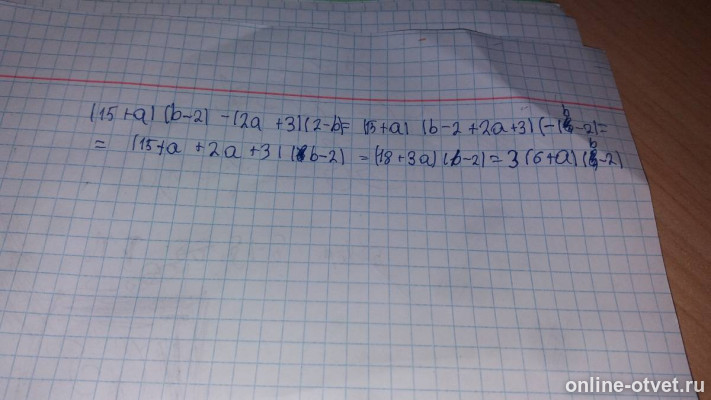 (15+a) (b-2) -(2a +3)(2-b)= (15+a) (b-2 +2a+3) (-(b-2)=
= (15+a +2a +3) (b-2) =(18+3a) (b-2)= 3 (6+a) (b-2)
online-otvet.ru